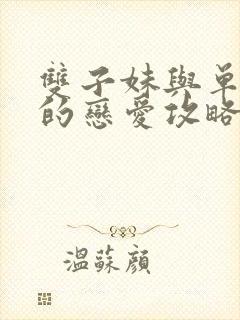 雙子妹與單
的戀愛攻略
溫蘇顏